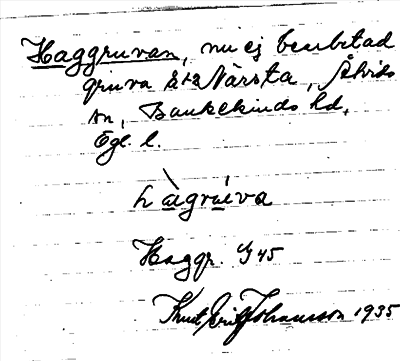 Haggruvan, nu ej bearbetad
gruva St:a Närsta, Åtvids
sn, Bankekinds hd,
Ögl. l.
hàgrúva
Haggr. G 45
Knut Erik Johansson 1935